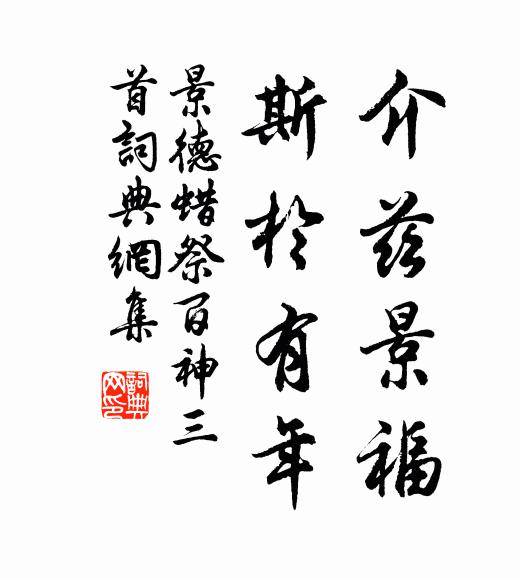 介茲景福
斯於有年
景德蜡祭百神三
首詞典網集
詞典
网印